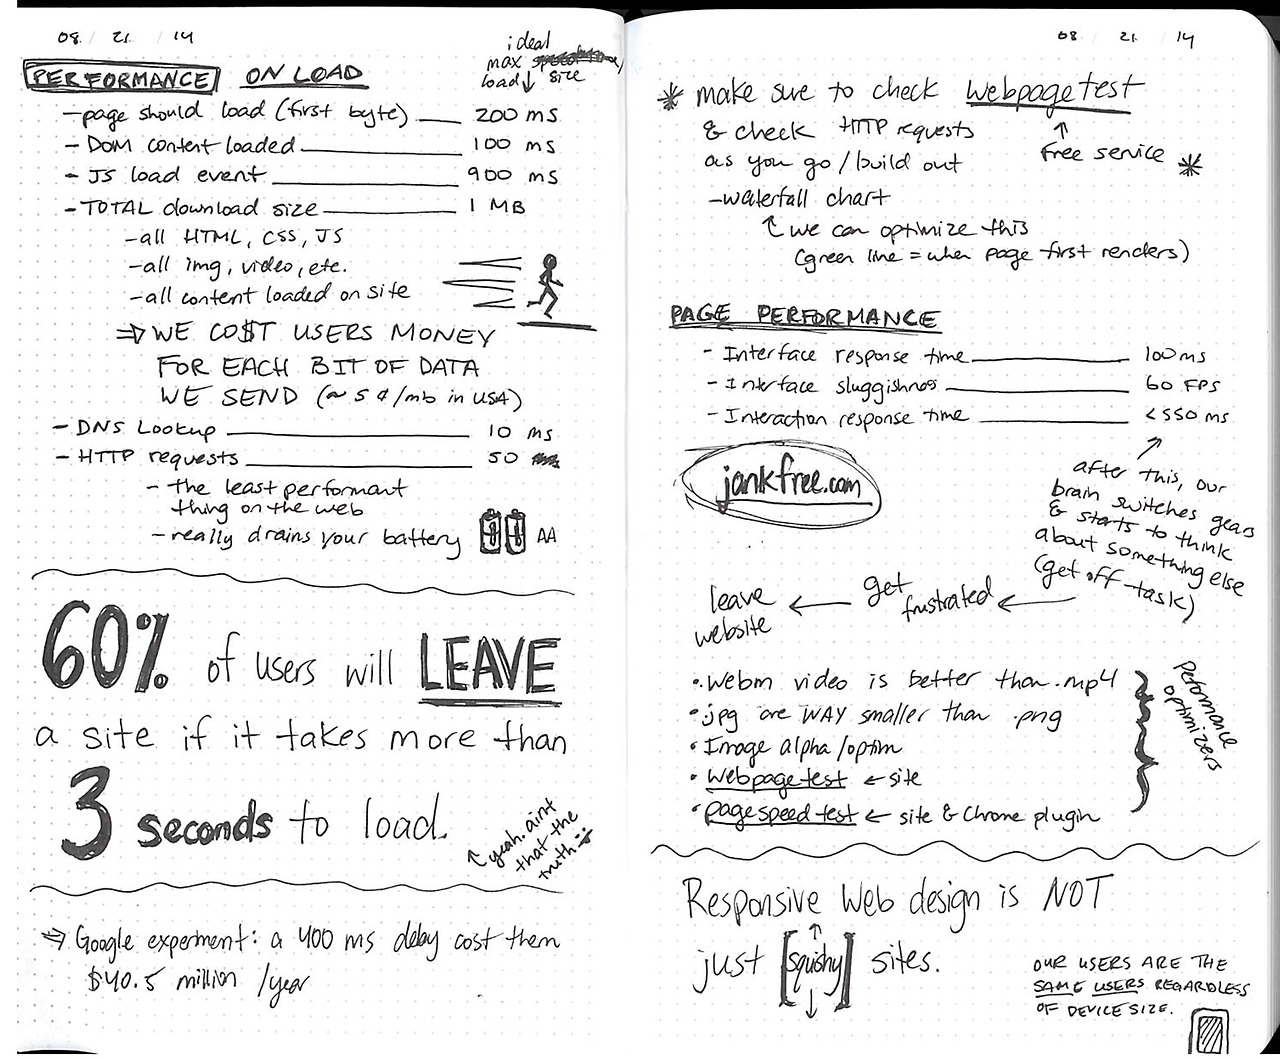 08 / 21 / 14
PERFORMANCE ON LOAD
ideal
max
load↓ size
- page should load (first byte) 200 ms
- DOM content loaded 100 ms
- JS load event 900 ms
- TOTAL download size 1 MB
- all HTML, CSS, JS
- all img, video, etc.
- all content loaded on site
⇒ WE CO$T USERS MONEY
FOR EACH BIT OF DATA
WE SEND (~ 5 ¢/mb in USA)
- DNS Lookup 10 ms
- HTTP requests 50
- the least performant
thing on the web
- really drains your battery AA
60% of users will LEAVE
a site if it takes more than
3 seconds to load.
↖ yeah. aint
that the
truth
⇒ Google experiment: a 400 ms delay cost them
$40.5 million /year
08 / 21 / 14
* make sure to check Webpagetest
& check HTTP requests
↑
free service *
as you go/build out
- waterfall chart
↑ we can optimize this
(green line = when page first renders)
PAGE PERFORMANCE
- Interface response time 100ms
- Interface sluggishness 60 FPS
- Interaction response time <550 ms
jankfree.com
after this, our
brain switches gears
& starts to think
about something else
(get off-task)
leave ← get ←
website frustrated
• webm video is better than .mp4
• jpg are WAY smaller than .png
• Image alpha/optim
• Webpagetest ← site
• pagespeedtest ← site & Chrome plugin
Peformance
optimizers
Responsive Web design is NOT
just [squishy] sites.
OUR USERS ARE THE
SAME USERS REGARDLESS
OF DEVICE SIZE.